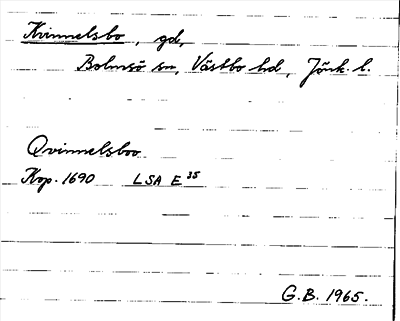 Kvinnelsbo, gd,
Bolmsö sn, Västbo hd, Jönk. l.
Qvinnelsboo
Kop. 1690 LSA E 35
G.B. 1965.